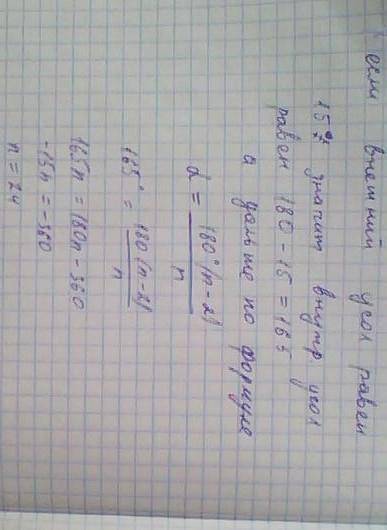 если внешний угол равен
15° значит внутр угол
равен 180 - 15 = 165
а дальше по формуле
α = 180°(n-2)/n
165° = 180(n-2)/n
165n = 180n - 360
-15n = -360
n = 24